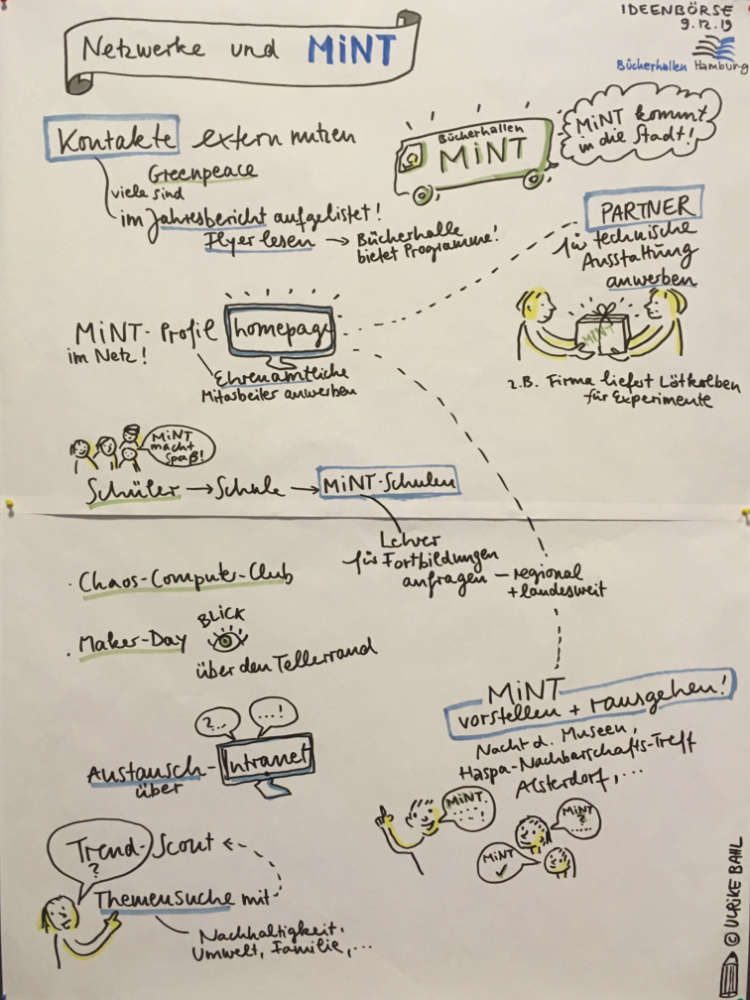 IDEENBÖRSE
9.12.19
Bücherhallen Hamburg
Netzwerke und MiNT
Kontakte extern nutzen
Greenpeace
viele sind
im Jahresbericht aufgelistet!
Flyer lesen → Bücherhalle
bietet Programme!
Bücherhallen
MiNT
MiNT kommt
in die Stadt!
PARTNER
für technische
Ausstattung
anwerben
MiNT
z.B. Firma liefert Lötkolben
für Experimente
MiNT-Profil homepage
im Netz!
Ehrenamtliche
Mitarbeiter anwerben
MiNT
macht
Spaß!
Schüler → Schule → MiNT-Schulen
Lehrer
für Fortbildungen
anfragen – regional
+ landesweit
· Chaos-Computer-Club
· Maker-Day
BLICK
über den Tellerrand
?...
...!
Austausch- Intranet
über
MiNT
vorstellen + rausgehen!
Nacht d. Museen,
Haspa-Nachbarschafts-Treff
Alsterdorf,...
MiNT.
MiNT
?
MiNT
✓
Trend-Scout
?
Themensuche mit
Nachhaltigkeit.
Umwelt, Familie,...
© ULRIKE BAHL